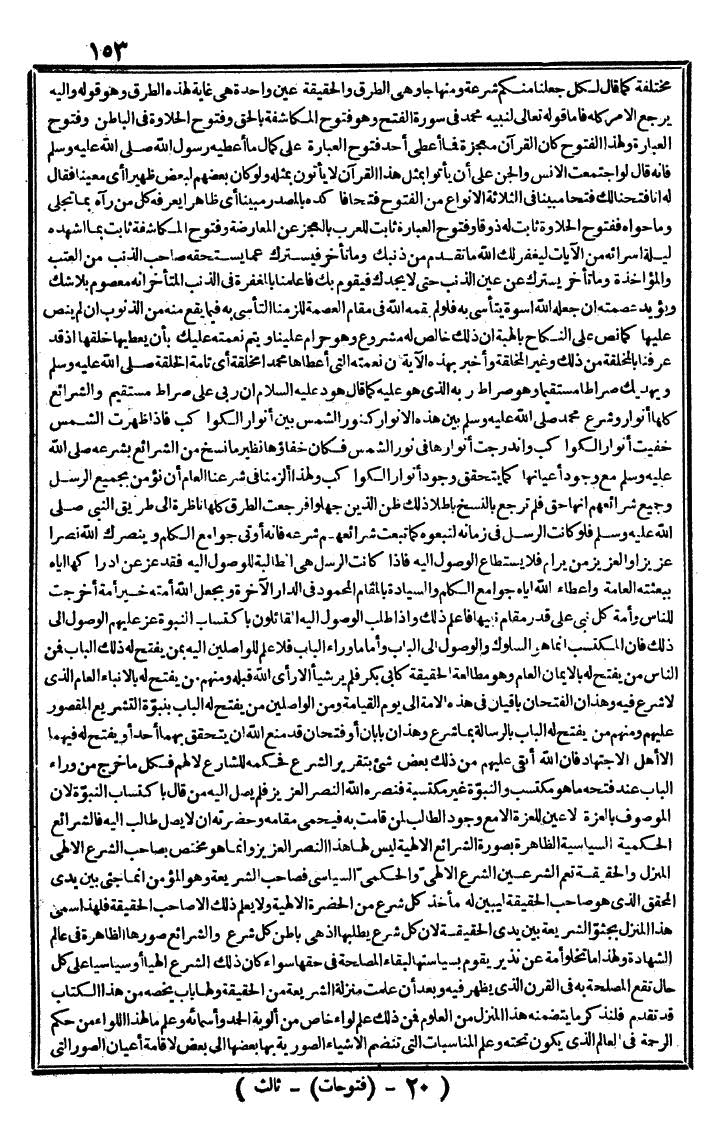 ١٥٣
مختلفة كما قال لكل جعلنا منكم شرعة ومنهاجا وهى الطرق والحقيقة عين واحدة هى غاية لهذه الطرق وهو قوله واليه
يرجع الامر كله فاما قوله تعالى لنبيه محمد فى سورة الفتح وهو فتوح المكاشفة بالحق وفتوح الحلاوة فى الباطن وفتوح
العبارة ولهذا الفتوح كان القرآن معجزة فما أعطى أحد فتوح العبارة على كمال ما أعطيه رسول الله صلى الله عليه وسلم
فانه قال لو اجتمعت الانس والجن على أن يأتوا بمثل هذا القرآن لا يأتون بمثله ولو كان بعضهم لبعض ظهيرا أى معينا فقال
له انا فتحنا لك فتحا مبينا فى الثلاثة الانواع من الفتوح فتحا فأكده بالمصدر مبينا أى ظاهرا يعرفه كل من رآه بما تجلى
وما حواه ففتوح الحلاوة ثابت له ذوقا وفتوح العبارة ثابت للعرب بالعجز عن المعارضة وفتوح المكاشفة ثابت بما اشهده
ليلة اسرائه من الآيات ليغفر لك الله ما تقدم من ذنبك وما تأخر فيسترك عما يستحقه صاحب الذنب من العتب
والمؤاخذة وما تأخر يسترك عن عين الذنب حتى لا يجدك فيقوم بك فاعلمنا بالمغفرة فى الذنب المتأخر انه معصوم بلا شك
ويؤيد عصمته ان جعله الله اسوة يتأسى به فلو لم يقمه الله فى مقام العصمة للزمنا التأسى به فيما يقع منه من الذنوب ان لم ينص
عليها كما نص على النكاح بالهبة ان ذلك خالص له مشروع وهو حرام علينا ويتم نعمته عليك بأن يعطيها خلقها اذ قد
عرفنا بالمخلقة من ذلك وغير المخلقة وأخبر بهذه الآية ان نعمته التى أعطاها محمدا مخلقة أى تامة الخلقة صلى الله عليه وسلم
ويهديك صراطا مستقيما وهو صراط ربه الذى هو عليه كما قال هود عليه السلام ان ربى على صراط مستقيم والشرائع
كلها أنوار وشرع محمد صلى الله عليه وسلم بين هذه الانوار كنور الشمس بين أنوار الكواكب فاذا ظهرت الشمس
خفيت أنوار الكواكب واندرجت أنوارها فى نور الشمس فكان خفاؤها نظير ما نسخ من الشرائع بشرعه صلى الله
عليه وسلم مع وجود أعيانها كما يتحقق وجود أنوار الكواكب ولهذا ألزمنا فى شرعنا العام أن نؤمن بجميع الرسل
وجميع شرائعهم انها حق فلم ترجع بالنسخ باطلا ذلك ظن الذين جهلوا فرجعت الطرق كلها ناظرة الى طريق النبى صلى
الله عليه وسلم فلو كانت الرسل فى زمانه لتبعوه كما تبعت شرائعهم شرعه فانه أوتى جوامع الكلم وينصرك الله نصرا
عزيزا والعزيز من يرام فلا يستطاع الوصول اليه فاذا كانت الرسل هى الطالبة للوصول اليه فقد عز عن ادراكها اياه
ببعثته العامة واعطاء الله اياه جوامع الكلم والسيادة بالمقام المحمود فى الدار الآخرة وبجعل الله أمته خير أمة أخرجت
للناس وأمة كل نبى على قدر مقام نبيها فاعلم ذلك واذا طلب الوصول اليه القائلون باكتساب النبوة عز عليهم الوصول الى
ذلك فان المكتسب انما هو السلوك والوصول الى الباب وأما ما وراء الباب فلا علم للواصلين اليه بمن يفتح له ذلك الباب فمن
الناس من يفتح له بالايمان العام وهو مطالعة الحقيقة كابى بكر فلم ير شيأ الا رأى الله قبله ومنهم من يفتح له بالانباء العام الذى
لا شرع فيه وهذان الفتحان باقيان فى هذه الامة الى يوم القيامة ومن الواصلين من يفتح له الباب بنبوة التشريع المقصور
عليهم ومنهم من يفتح له الباب بالرسالة بما شرع وهذان بابان أو فتحان قد منع الله ان يتحقق بهما أحد أو يفتح له فيهما
الا أهل الاجتهاد فان الله أبقى عليهم من ذلك بعض شئ بتقرير الشرع فحكمه للشارع لا لهم فكل ما خرج من وراء
الباب عند فتحه ما هو مكتسب والنبوة غير مكتسبة فنصره الله النصر العزيز فلم يصل اليه من قال باكتساب النبوة لان
الموصوف بالعزة لا عين للعزة الا مع وجود الطالب لمن قامت به فيحمى مقامه وحضرته ان لا يصل طالب اليه فالشرائع
الحكمية السياسية الظاهرة بصورة الشرائع الالهية ليس لها هذا النصر العزيز وانما هو مختص بصاحب الشرع الالهى
المنزل والحقيقة تعم الشرعين الشرع الالهى والحكمى السياسى فصاحب الشريعة وهو المؤمن انما جثى بين يدى
المحقق الذى هو صاحب الحقيقة ليبين له مأخذ كل شرع من الحضرة الالهية ولا يعلم ذلك الا صاحب الحقيقة فلهذا سمى
هذا المنزل بجثو الشريعة بين يدى الحقيقة لان كل شرع يطلبها اذ هى باطن كل شرع والشرائع صورها الظاهرة فى عالم
الشهادة ولهذا ما تخلو أمة عن نذير يقوم بسياستها لبقاء المصلحة فى حقها سواء كان ذلك الشرع الهيا أو سياسيا على كل
حال تقع المصلحة به فى القرن الذى يظهر فيه وبعد أن علمت منزلة الشريعة من الحقيقة ولها باب يخصه من هذا الكتاب
قد تقدم فلنذكر ما يتضمنه هذا المنزل من العلوم فمن ذلك علم لواء خاص من ألوية الحمد وأسمائه وعلم ما لهذا اللواء من حكم
الرحمة فى العالم الذى يكون تحته وعلم المناسبات التى تنضم الاشياء الصورية بها بعضها الى بعض لاقامة أعيان الصور التى
( ٢٠ - (فتوحات) - ثالث )